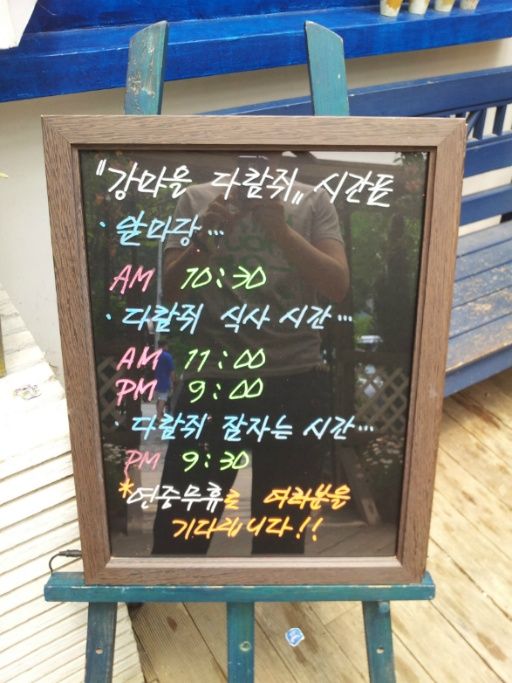 "강마을 다람쥐" 시간표
· 앞마당...
AM 10:30
· 다람쥐 식사 시간...
AM 11:00
PM 9:00
· 다람쥐 잠자는 시간...
PM 9:30
*연중무휴로 여러분을
기다립니다!!